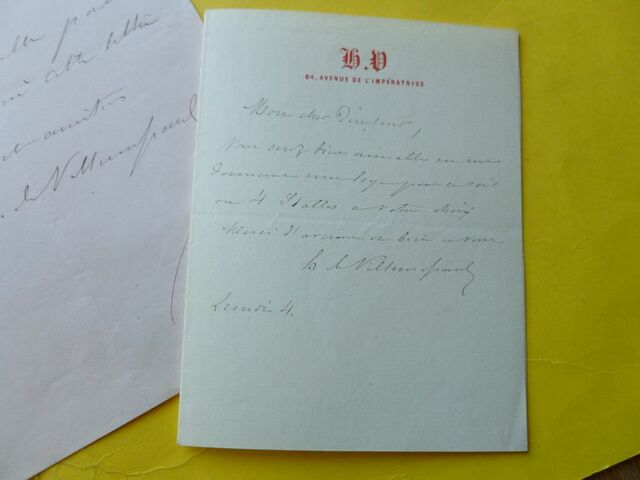 lle pour
cette lettre
et amities
de Villemessant
H. V
64, AVENUE DE L'IMPÉRATRICE
Mon cher Directeur,
Vous serez bien aimable en me
donnant une loge pour ce soir
ou 4 Stalles a votre choix
Merci d'avance et bien a vous
h de Villemessant
Lundi 4.